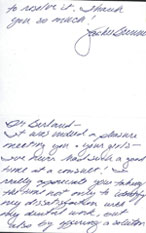 to resolve it. Thank
you so much!
Dr. Borland—
It was indeed a pleasure
meeting you & your girls—
I've never had such a good
time at a consult! I
really appreciate you taking
the time not only to identify
my dissatisfaction with
my dental work, but
also by offering a solution